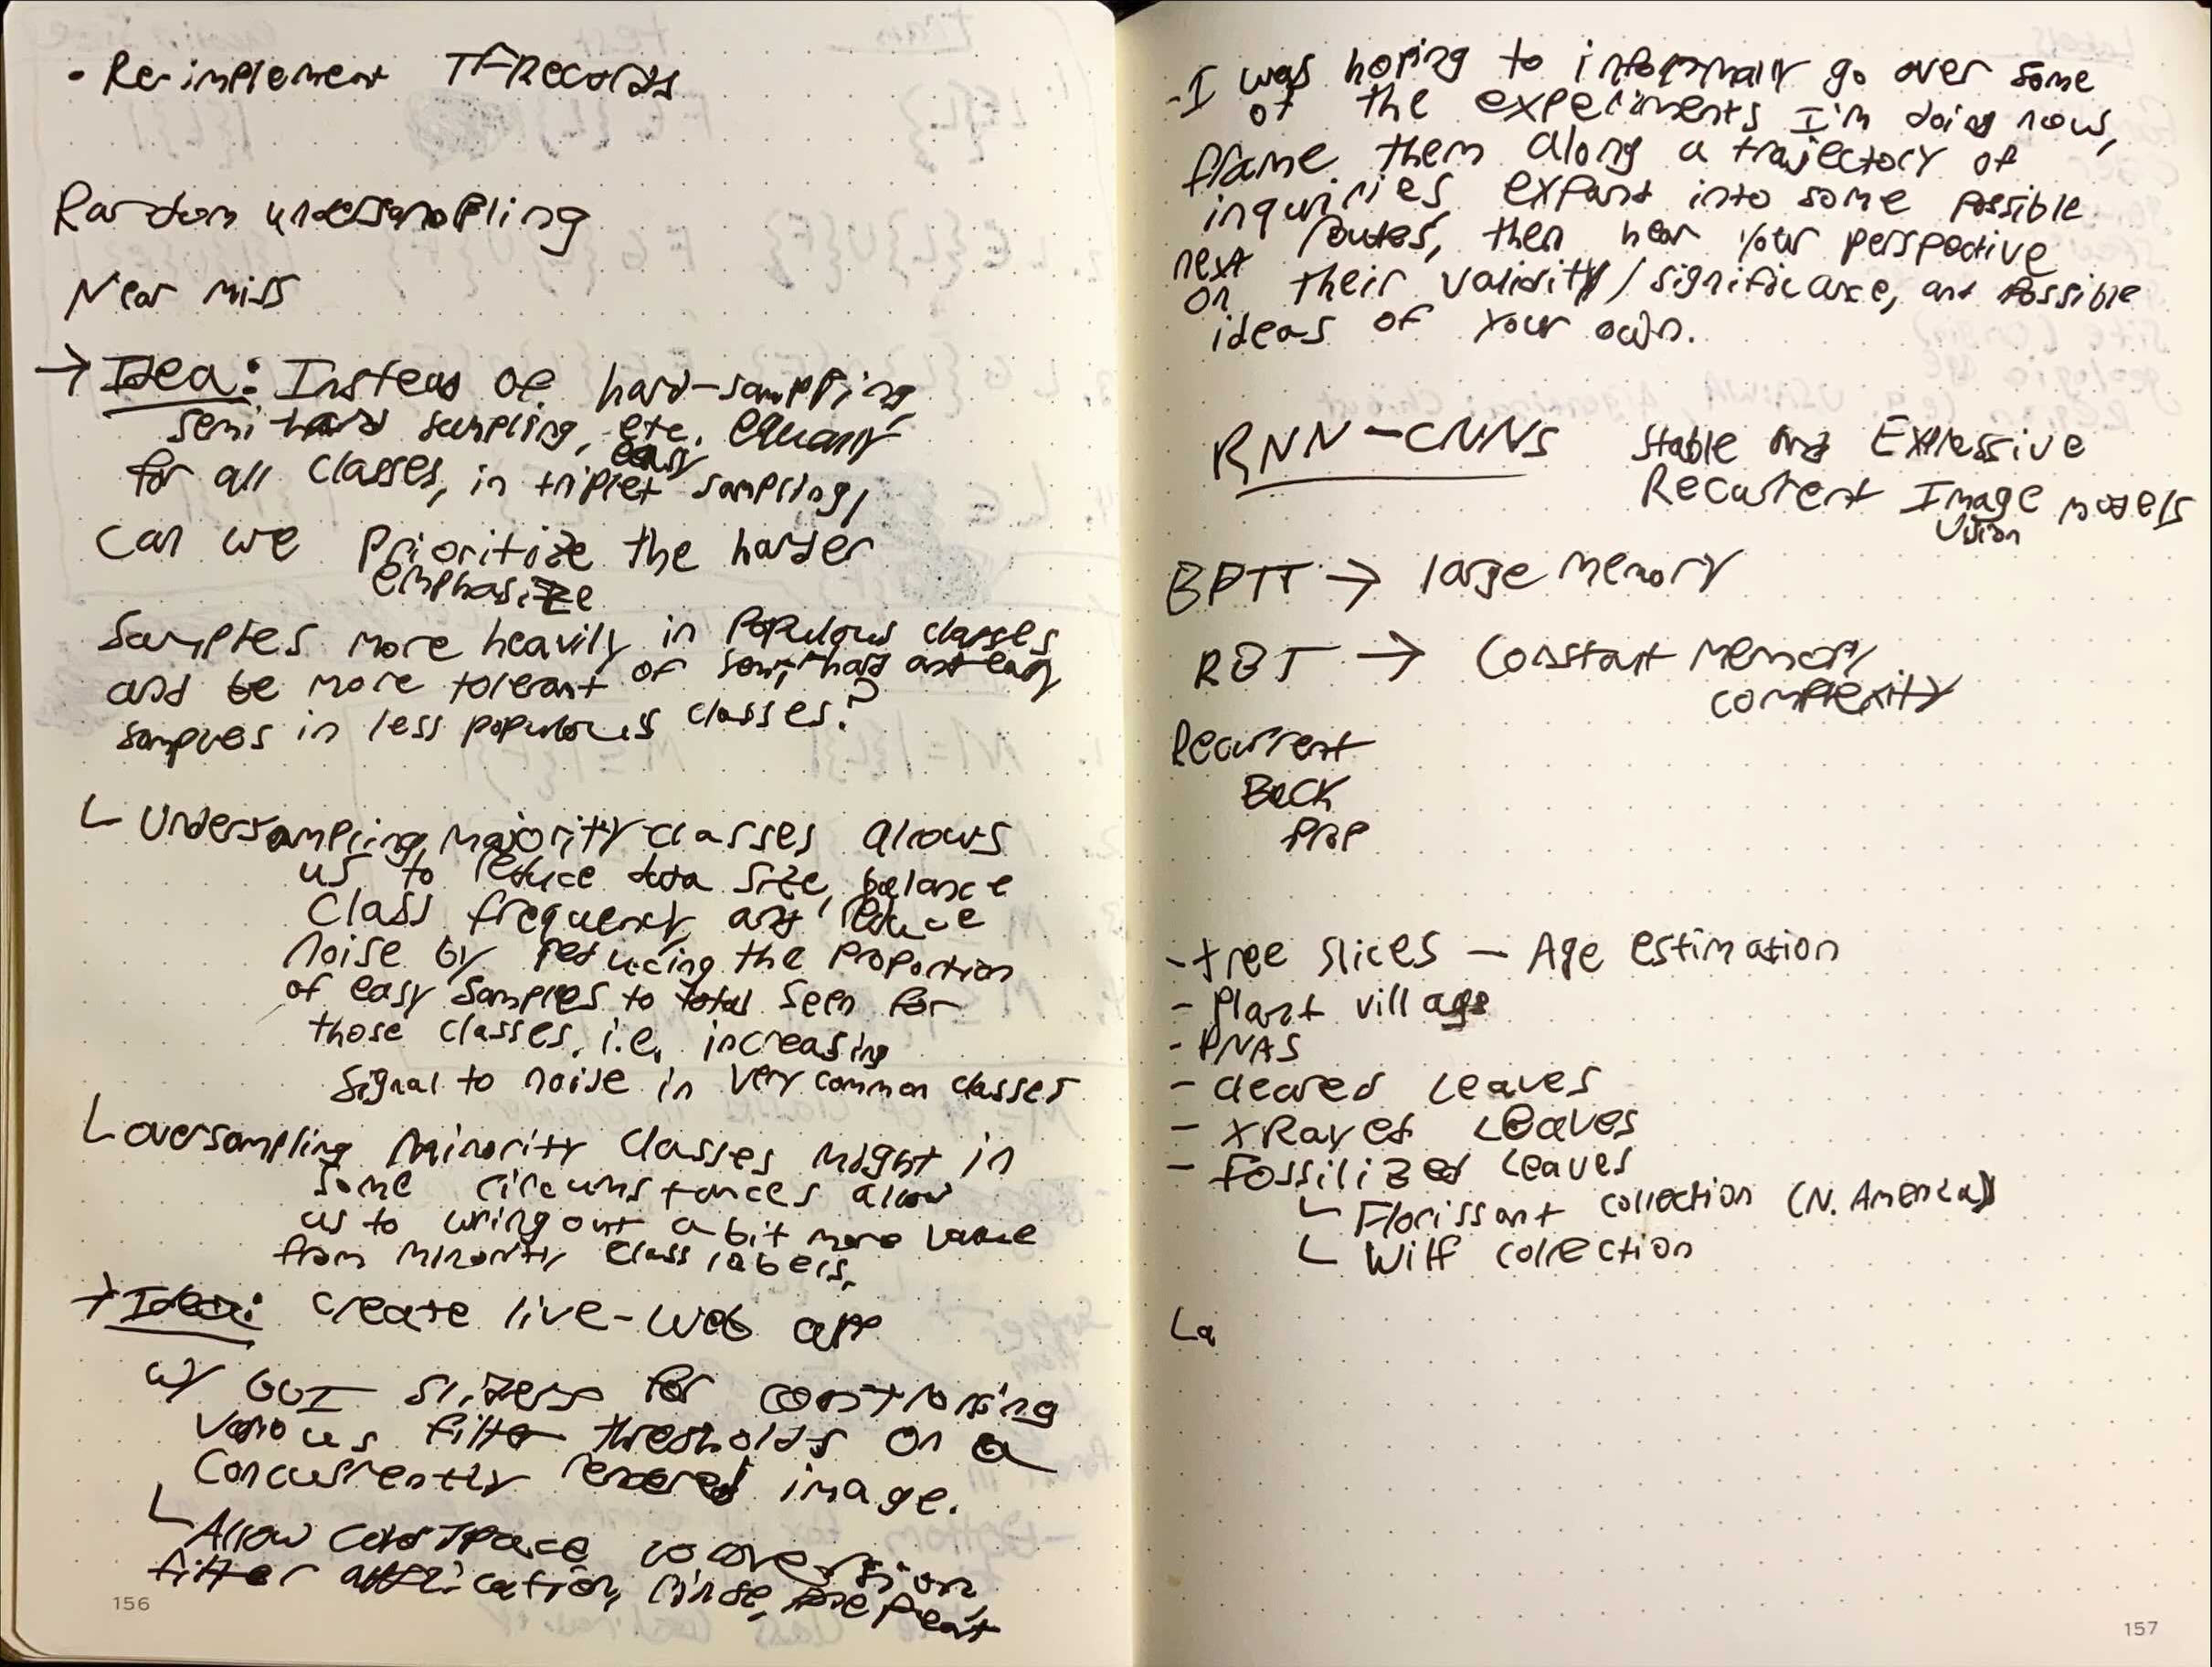 • Re-implement TFRecords
Random undersampling
Near miss
→ Idea: Instead of hard-sampling,
semi hard sampling, etc. equally
for all classes, in triplet easy sampling,
can we prioritize the harder
emphasize
samples more heavily in populous classes
and be more tolerant of semi-hard and easy
samples in less populous classes?
└ Undersampling majority classes allows
us to reduce data size, balance
class frequency, and reduce
noise by reducing the proportion
of easy samples to total seen for
those classes, i.e. increasing
signal to noise in very common classes
└ oversampling minority classes might in
some circumstances allow
us to wring out a bit more value
from minority class labels.
→ Idea: create live-web app
w/ GUI sliders for controlling
various filter thresholds on a
concurrently rendered image.
└ Allow colorspace conversion,
filter application, rinse, repeat
156
- I was hoping to informally go over some
of the experiments I'm doing now,
frame them along a trajectory of
inquiries expand into some possible
next routes, then hear your perspective
on their validity/significance, and possible
ideas of your own.
RNN-CNNs Stable and Expressive
Recurrent Image models
Vision
BPTT → large memory
RBT → Constant memory
complexity
Recurrent
Back
Prop
- tree slices — Age estimation
- Plant village
- PNAS
- cleared leaves
- XRayed Leaves
- Fossilized leaves
└ Florissant collection (N. America)
└ Wilf collection
La
157